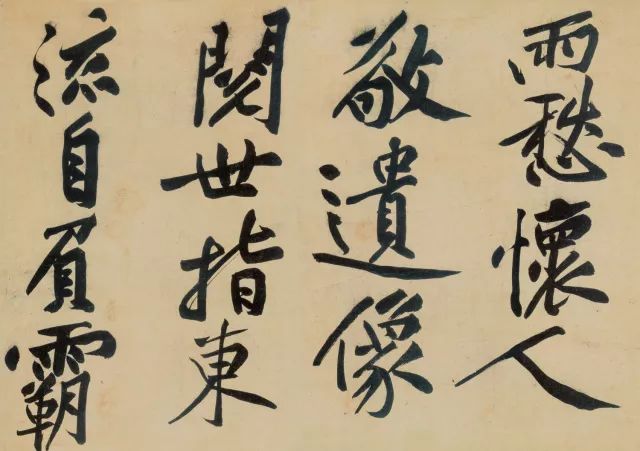 雨愁懷人
敬遺像
閱世指東
流自負霸